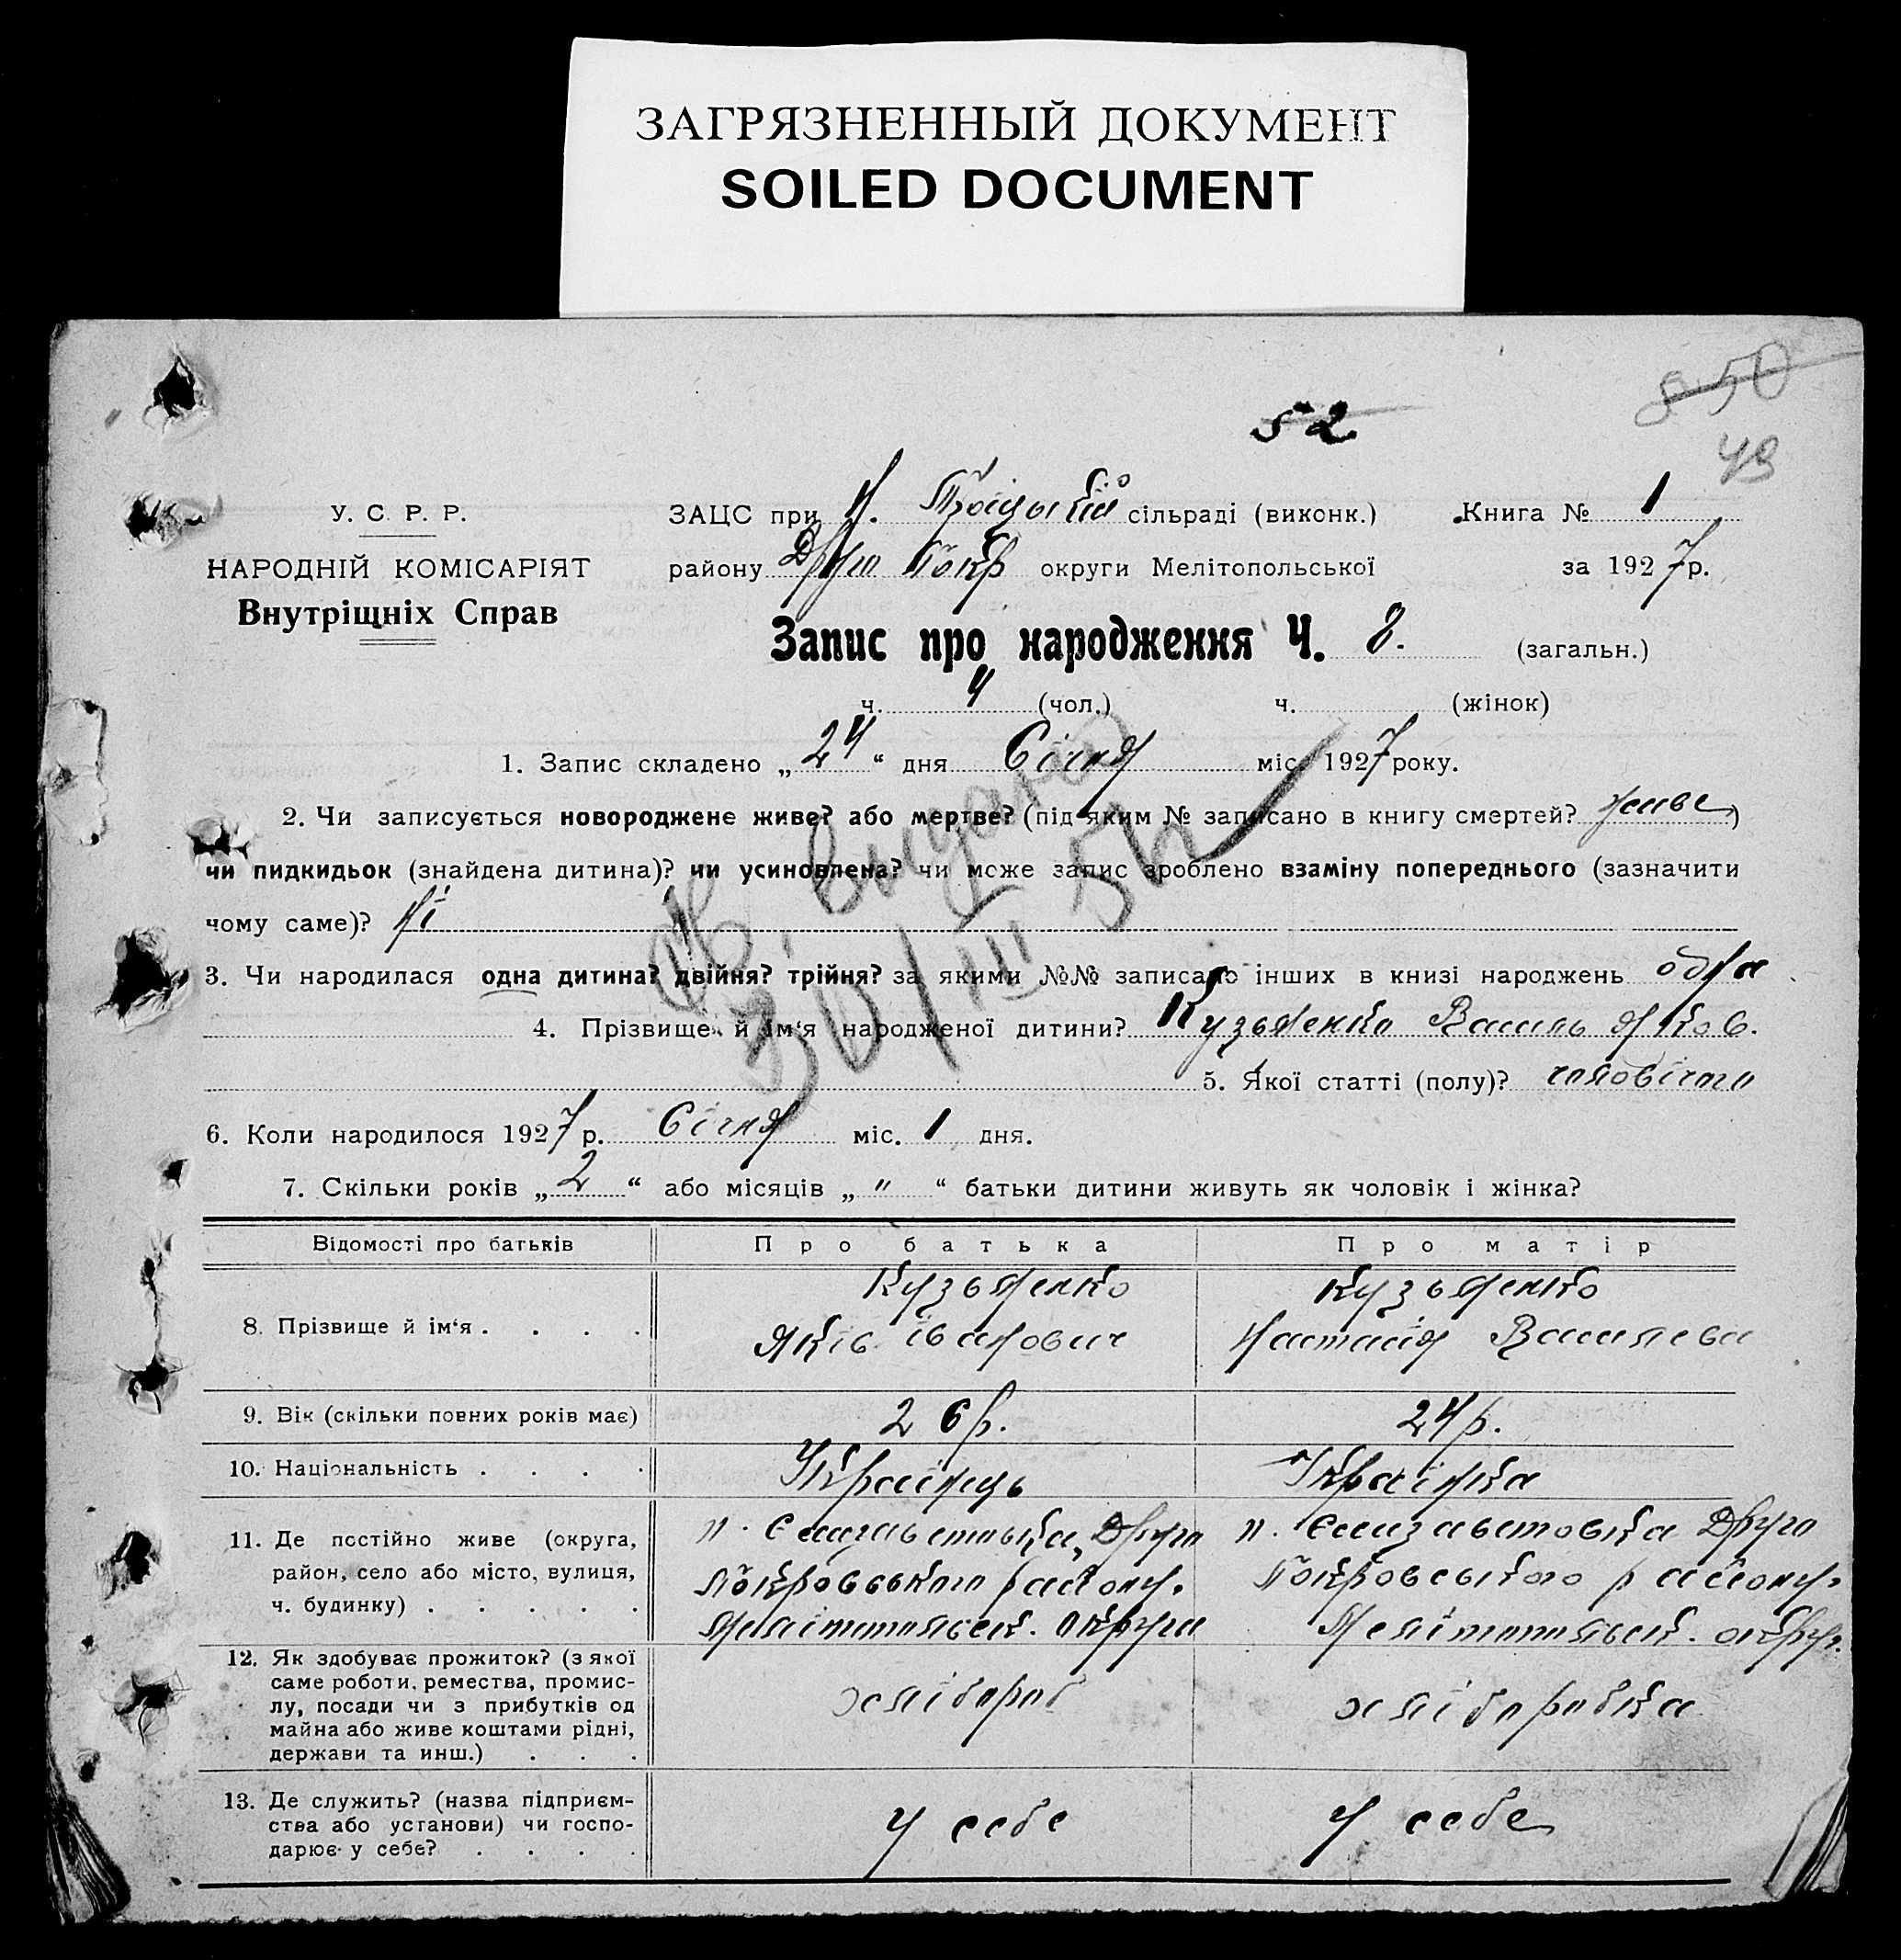 ЗАГРЯЗНЕННЫЙ ДОКУМЕНТ
SOILED DOCUMENT
8 50
52
49
У. С. Р. Р.
НАРОДНІЙ КОМІСАРІЯТ
Внутріщніх Справ
ЗАЦС при Н. Троіцькій сільраді (виконк.) Книга № 1
району Друго Покр округи Мелітопольської за 1927 р.
Запис про народження Ч. 8. (загальн.)
ч. 4 (чол.) ч. (жінок)
1. Запис складено „ 24 “ дня Січня міс. 1927 року.
2. Чи записується новороджене живе? або мертве? (під яким № записано в книгу смертей? живе)
чи пидкидьок (знайдена дитина)? чи усиновлена? чи може запис зроблено взаміну попереднього (зазначити
чому саме)? Ні
видано
30/III 54
3. Чи народилася одна дитина? двійня? трійня? за якими №№ записано інших в книзі народжень одна
4. Прізвище й ім‘я народженої дитини? Кузьменко Василь Яков.
5. Якої статті (полу)? чоловічого
6. Коли народилося 1927 р. Січня міс. 1 дня.
7. Скільки років „ 2 “ або місяців „ " “ батьки дитини живуть як чоловік і жінка?
Відомості про батьків Про батька Про матір
8. Прізвище й ім‘я . . . . Кузьменко Яків Іванович Кузьменко Настасія Васильева
9. Вік (скільки повних років має) 26 р. 24 р.
10. Національність . . . . Українець Українка
11. Де постійно живе (округа, район, село або місто, вулиця, ч. будинку) . . . . . п. Єлизаветовка, Друго Покровського району. Мелітопольск. округи п. Єлизаветовка Друго Покровського району. Мелітопольск. округ.
12. Як здобуває прожиток? (з якої саме роботи, ремества, промислу, посади чи з прибутків од майна або живе коштами рідні, держави та инш.) . . . хлібороб хліборобка
13. Де служить? (назва підприємства або установи) чи господарює у себе? . . . . У себе У себе